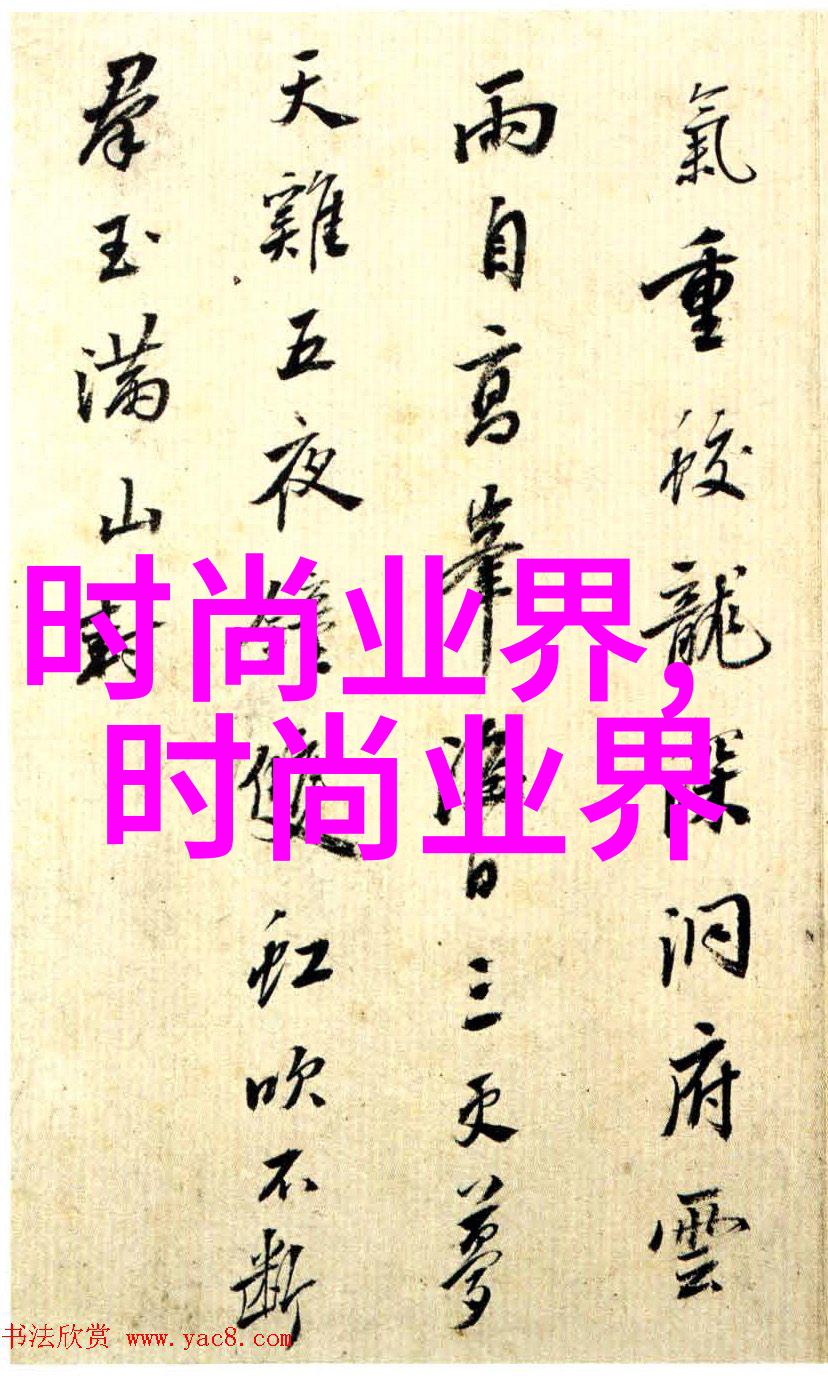 氣重蛟龍深洞府雲
雨自高峯海日三更夢
天雞五夜雄雙虹吹不斷
羣玉满山封
时尚业界，
时尚业界
书法欣赏 www.yac8.com